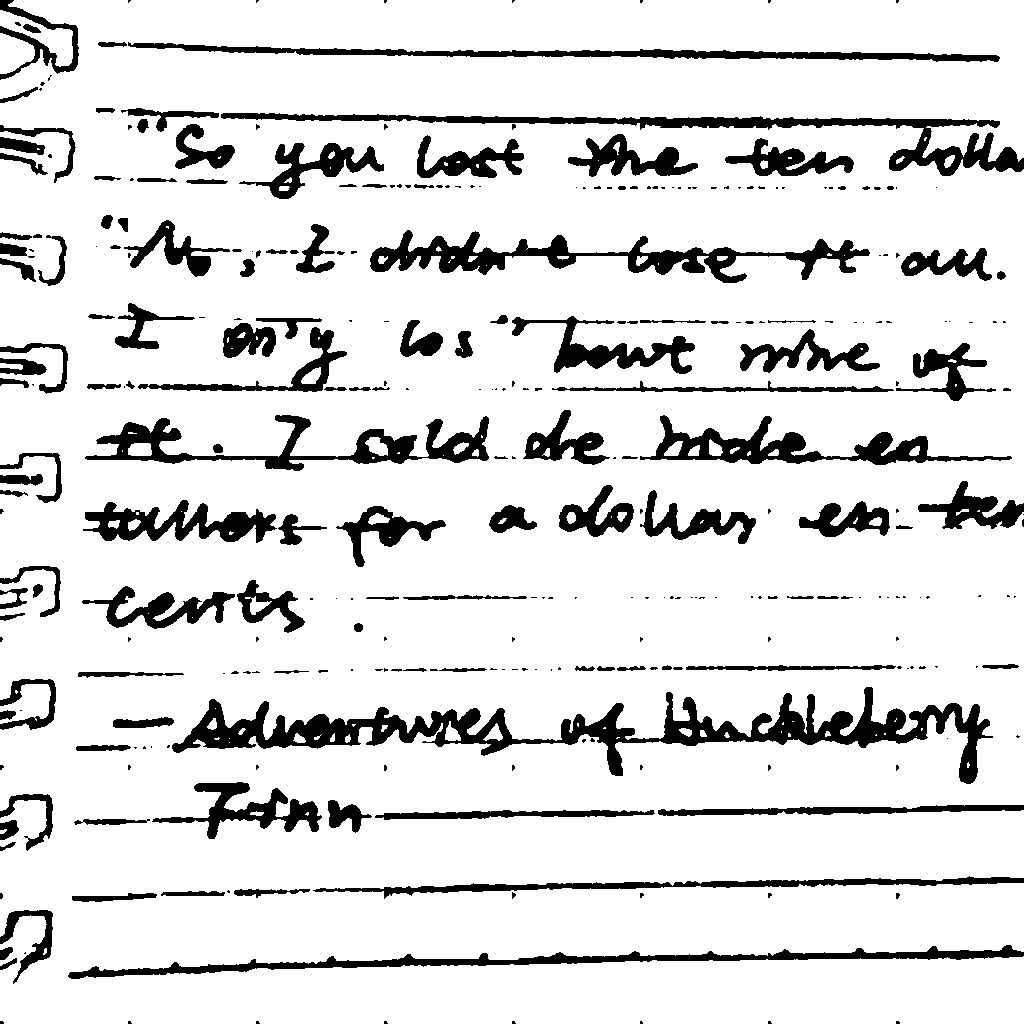 "So you lost the ten dolla
"No, I didn't lose it all.
I on'y los' 'bout nine of
it. I sold de hide en
taller for a dollar en ten
cents.
— Adventures of Huckleberry
Finn